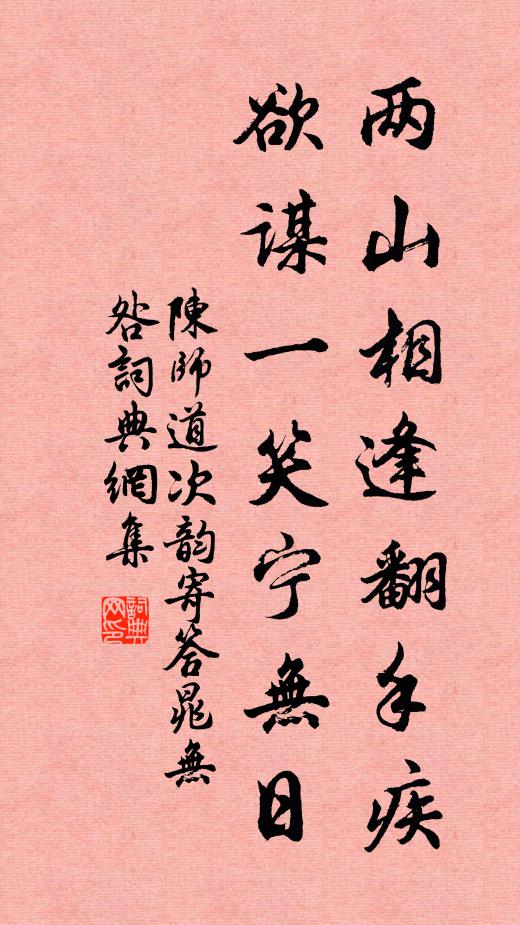 两山相逢翻手疾
欲谋一笑宁無日
陳师道次韵寄答晁無
咎詞典網集
詞典
网印